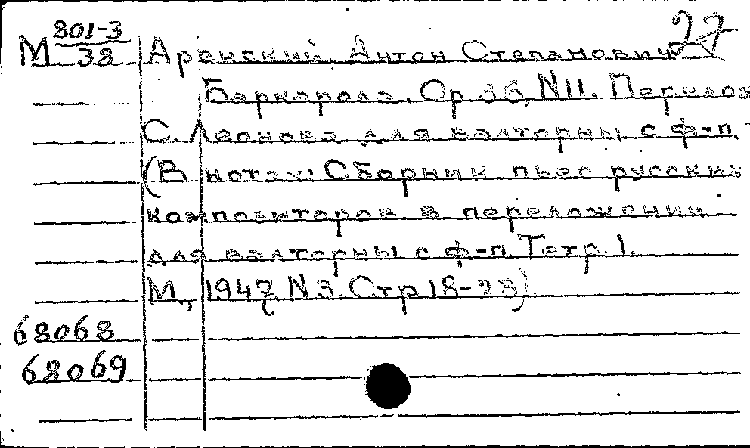 27
М 801-3/38 Аренский, Антон Степанович
Баркарола. Ор. 36, N11. Перелож.
С. Леонова для валторны с ф-п.
(В нотах: Сборник пьес русских
композиторов в переложении
для валторны с ф-п. Тетр. 1.
М., 1947, N 3. Стр 18-23)
68068
68069